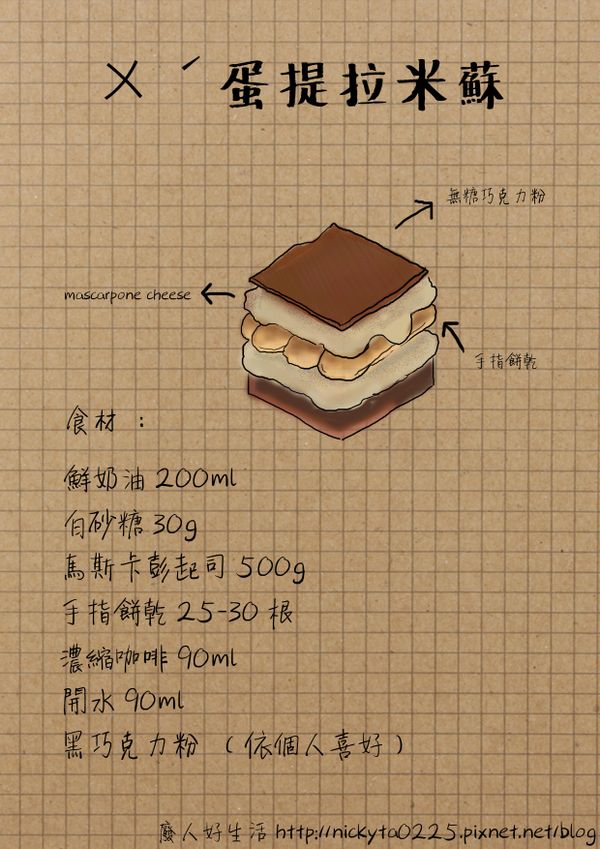 ㄨˊ蛋提拉米蘇
無糖巧克力粉
mascarpone cheese
手指餅乾
食材：
鮮奶油 200ml
白砂糖 30g
馬斯卡彭起司 500g
手指餅乾 25-30 根
濃縮咖啡 90ml
開水 90ml
黑巧克力粉（依個人喜好）
廢人好生活 http://nickyta0225.pixnet.net/blog